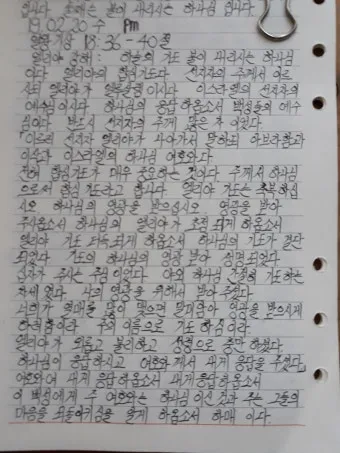 입니다. 오메는 불이 내리시는 하나님 입니다
19.02.20 수 Pm
열왕기상 18:36-40절
엘리야 강해: 하늘의 기도 불이 내리시는 하나님
이다 엘리야의 합심기도다 선지자의 주께서 이르
시되 엘리야가 말씀하심이시다 이스라엘의 선지자의
예수님이시다 하나님의 응답하옵소서 백성들의 예수
님이다 반드시 선지자의 주께 많은 자 이었다
이르되 선지자 엘리야가 나아가서 말하되 아브라함과
이삭과 이스라엘의 하나님 여호와다
전에 합심기도가 매우 중요하는 것이다 주께서 하나님
으로써 합심기도라고 합니다 엘리야 기도는 축복하심
시오 하나님의 영광을 받으십시오 영광을 받아
주시옵소서 하나님의 엘리야가 초점 되게 하옵소서
엘리야 기도 더욱 되게 하옵소서 하나님의 기도가 결단
되었다 기도의 하나님의 영광 받아 설명되었다
신자가 주시는 주님 이었다 야외 하나님 간절히 기도하는
자세 였다 나의 영광을 위해서 받아 주셨다
너희가 열매를 많이 맺으면 할례받아 영광을 받으시게
하려 함이라 주의 이름으로 기도 하심이라
엘리야가 외롭고 불리하고 성령으로 충만 하셨다
하나님이 응답하시고 여호와께서 내게 응답을 주셨다
여호와여 내게 응답하옵소서 내게 응답하옵소서
이 백성에게 주 여호와는 하나님 이신 것과 주는 그들의
마음을 되돌이키심을 알게 하옵소서 하매 이다